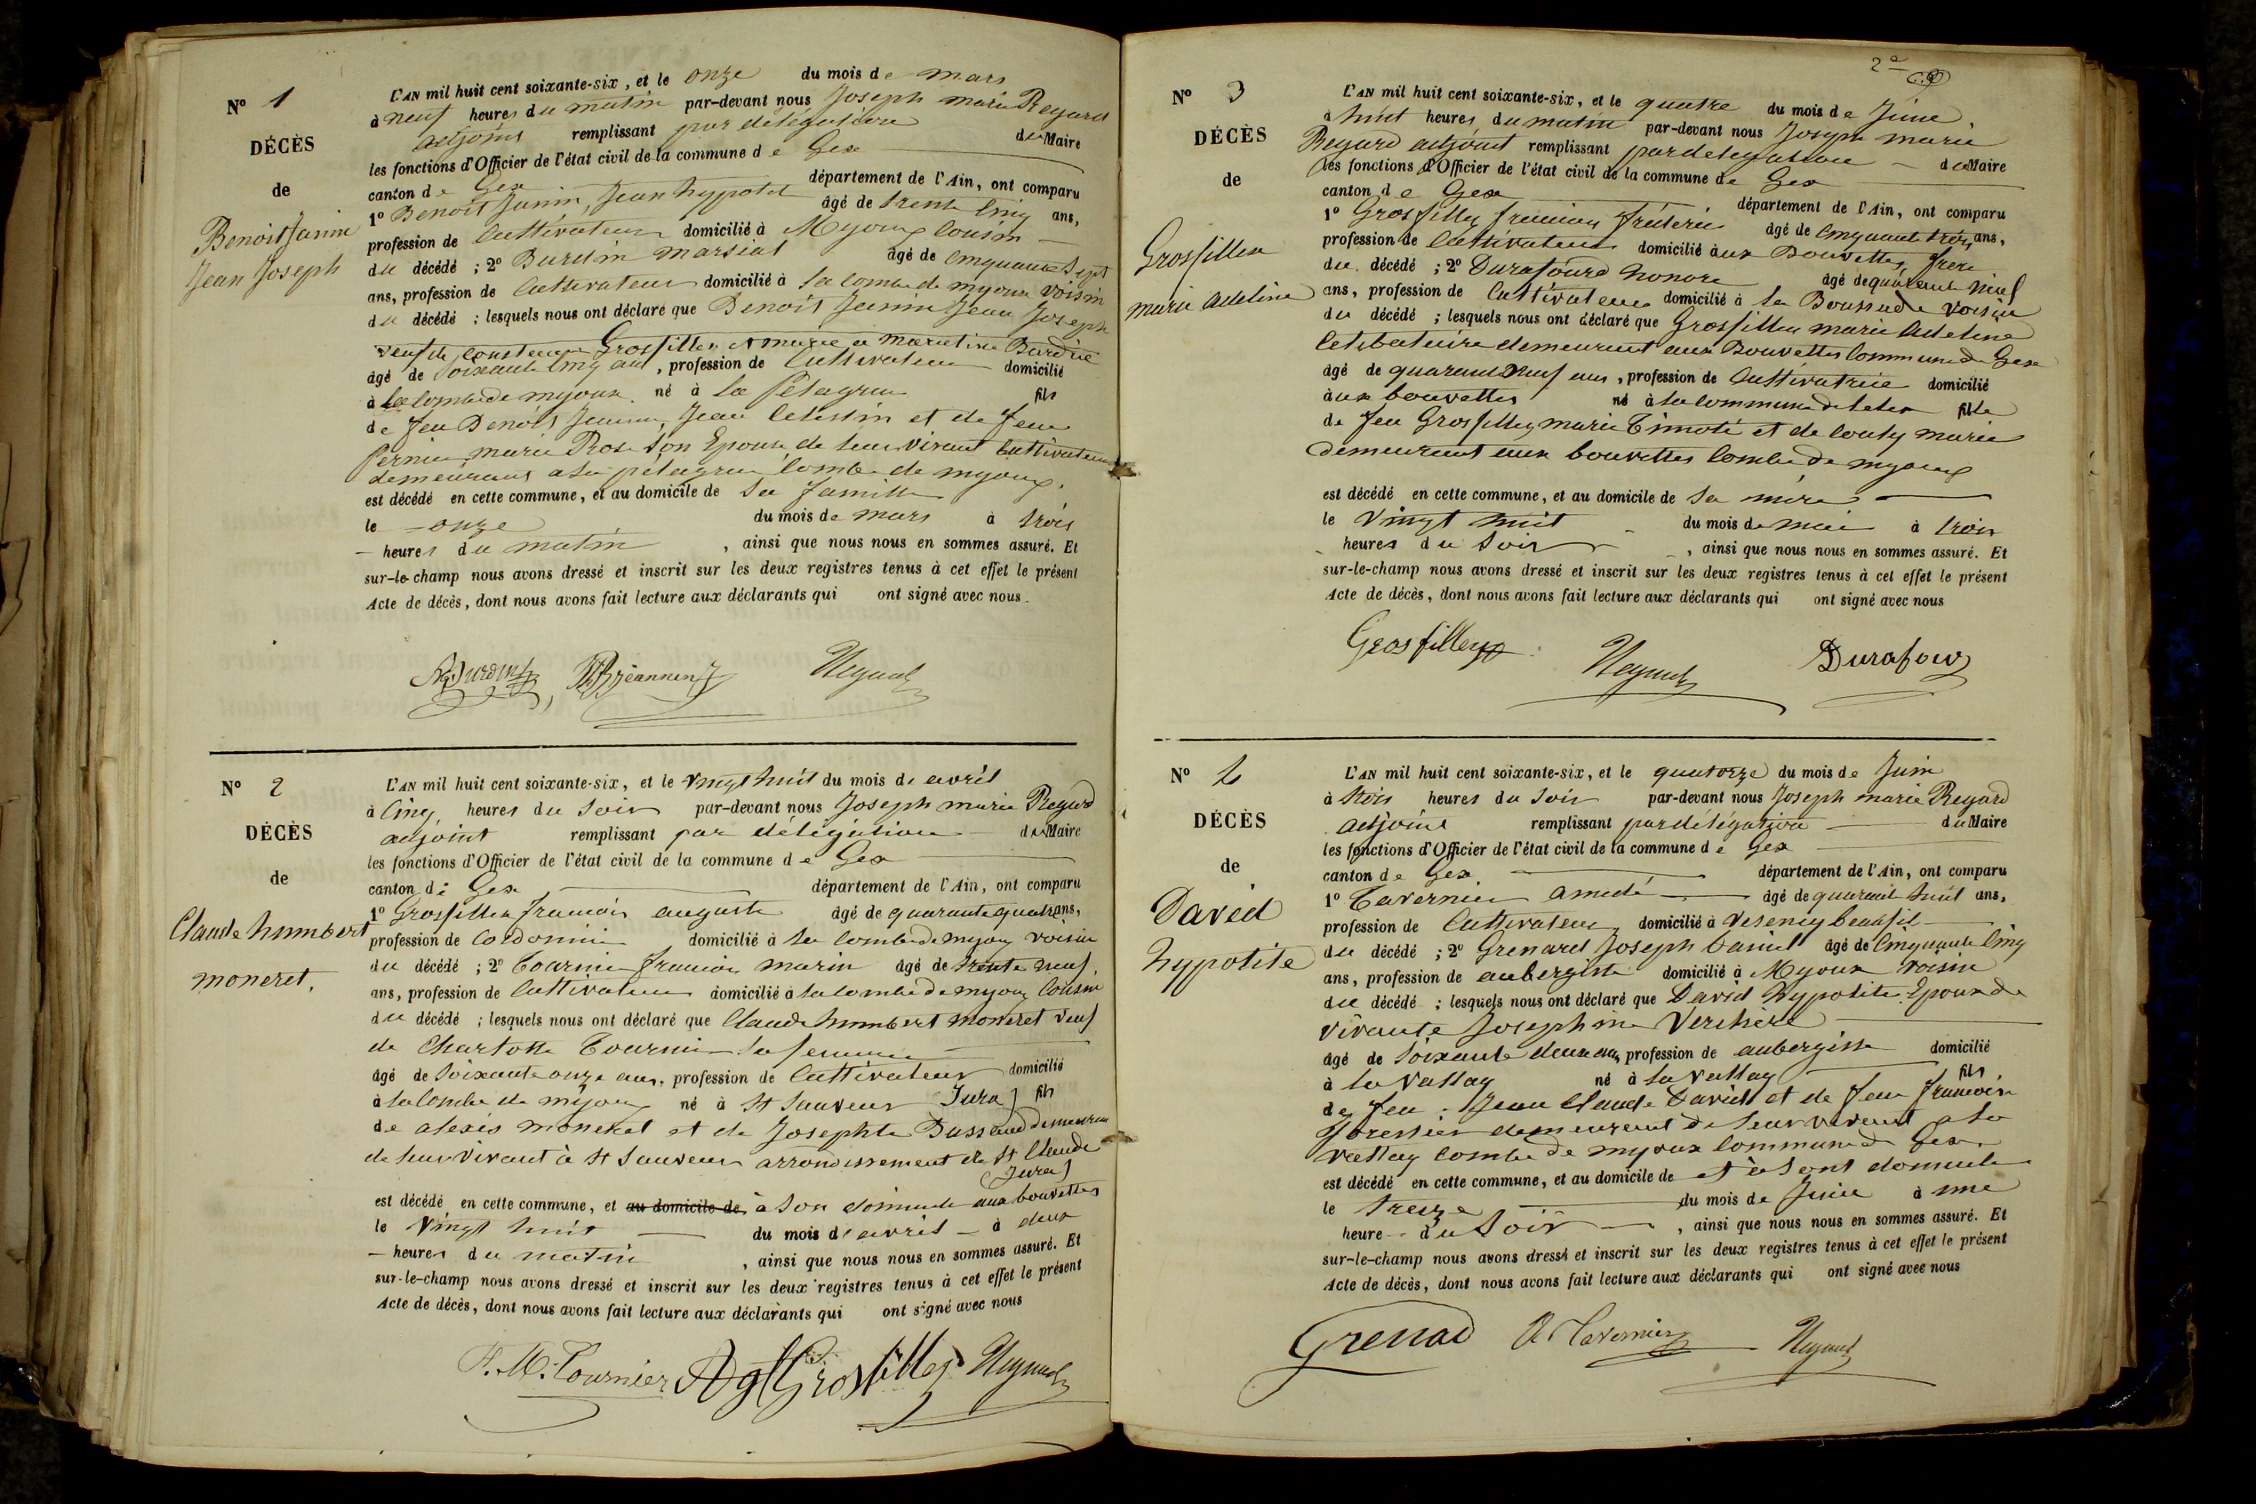 N° 1
DÉCÈS
de
Benoit Janin
Jean Joseph
L'AN mil huit cent soixante-six, et le onze du mois de mars
à neuf heures du matin par-devant nous Joseph marie Regard
adjoint remplissant par délégation du Maire
les fonctions d'Officier de l'état civil de la commune de Gex
canton de Gex département de l'Ain, ont comparu
1° Benoit Janin, Jean hypolite âgé de trente cinq ans,
profession de Cultivateur domicilié à Myoux Cousin
du décédé ; 2° Burdin marsial âgé de cinquante sept
ans, profession de Cultivateur domicilié à la combe de myoux voisin
du décédé ; lesquels nous ont déclaré que Benoit Janin Jean Joseph
veuf de Grosfilley
âgé de soixante cinq ans, profession de Cultivateur domicilié
à la combe de myoux né à la Pelagrue fils
de feu Benoit Janin, Jean Celestin et de feue
Pernier marie Rose son Epouse de leur vivant Cultivateurs
demeurant à la pelagrue Combe de myoux.
est décédé en cette commune, et au domicile de sa famille
le onze du mois de mars à trois
heures du matin, ainsi que nous nous en sommes assuré. Et
sur-le-champ nous avons dressé et inscrit sur les deux registres tenus à cet effet le présent
Acte de décès, dont nous avons fait lecture aux déclarants qui ont signé avec nous.
Regard
N° 2
DÉCÈS
de
Claude humbert
moneret.
L'AN mil huit cent soixante-six, et le vingt huit du mois de avril
à Cinq heures du soir par-devant nous Joseph marie Regard
adjoint remplissant par délégation du Maire
les fonctions d'Officier de l'état civil de la commune de Gex
canton de Gex département de l'Ain, ont comparu
1° Grosfilley francois auguste âgé de quarante quatre ans,
profession de Cordonnier domicilié à la combe de myoux voisin
du décédé ; 2° Tournier francois marin âgé de trente neuf
ans, profession de Cultivateur domicilié à la combe de myoux Cousin
du décédé ; lesquels nous ont déclaré que Claude humbert moneret veuf
de Charlotte Tournier sa femme
âgé de soixante onze ans, profession de Cultivateur domicilié
à la Combe de mijoux né à St Sauveur Jura) fils
de alexis moneret et de Josephte Dussaud demeurant
de leur vivant à St Sauveur arrondissement de St Claude
Jura)
est décédé en cette commune, et au domicile de à son domicile aux bouvettes
le vingt huit du mois d'avril à deux
heures du matin, ainsi que nous nous en sommes assuré. Et
sur-le-champ nous avons dressé et inscrit sur les deux registres tenus à cet effet le présent
Acte de décès, dont nous avons fait lecture aux déclarants qui ont signé avec nous
F. M. Tournier Agte Grosfilley Regard
2e
N° 3
DÉCÈS
de
Grosfilley
marie adeline
L'AN mil huit cent soixante-six, et le quatre du mois de Juin
à huit heures du matin par-devant nous Joseph marie
Regard adjoint remplissant par delegation du Maire
les fonctions d'Officier de l'état civil de la commune de Gex
canton de Gex département de l'Ain, ont comparu
1° Grosfilley francois frederic âgé de cinquante trois ans,
profession de Cultivateur domicilié aux Bouvettes frere
du décédé ; 2° Durafourd honoré âgé de quarante neuf
ans, profession de Cultivateur domicilié à la voisin
du décédé ; lesquels nous ont déclaré que Grosfilley marie adeline
Celibataire demeurant aux Bouvettes Commune de Gex
âgé de quarante neuf ans, profession de Cultivatrice domicilié
aux bouvettes né à la commune de Lelex fille
de feu Grosfilley marie Timoté et de marie
demeurant aux bouvettes Combe de myoux
est décédé en cette commune, et au domicile de sa mère
le vingt huit du mois de mai à trois
heures du soir, ainsi que nous nous en sommes assuré. Et
sur-le-champ nous avons dressé et inscrit sur les deux registres tenus à cet effet le présent
Acte de décès, dont nous avons fait lecture aux déclarants qui ont signé avec nous
Grosfilley Regard Durafour
N° 4
DÉCÈS
de
David
hypolite
L'AN mil huit cent soixante-six, et le quatorze du mois de Juin
à trois heures du soir par-devant nous Joseph marie Regard
adjoint remplissant par délégation du Maire
les fonctions d'Officier de l'état civil de la commune de Gex
canton de Gex département de l'Ain, ont comparu
1° Tavernier amedé âgé de quarante huit ans,
profession de Cultivateur domicilié à Vesency beaufils
du décédé ; 2° Grenard Joseph Daniel âgé de Cinquante Cinq
ans, profession de aubergiste domicilié à Myoux voisin
du décédé ; lesquels nous ont déclaré que David hypolite Epoux de
vivante Josephine Verchère
âgé de soixante deux ans, profession de aubergiste domicilié
à la Vattay né à la Vattay fils
de feu Jean Claude David et de feue francoise
forestier demeurant de leur vivant à la
vattay Combe de myoux Commune de Gex
est décédé en cette commune, et au domicile de et à sont domicile
le treize du mois de Juin à une
heure du soir, ainsi que nous nous en sommes assuré. Et
sur-le-champ nous avons dressé et inscrit sur les deux registres tenus à cet effet le présent
Acte de décès, dont nous avons fait lecture aux déclarants qui ont signé avec nous
Grenad A Tavernier Regard